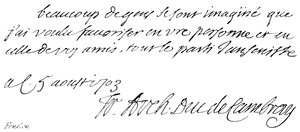 beaucoup de gens se sont imaginé que
j'ai voulu favoriser en vre personne et en
celle de vos amis, tout le parti Janseniste
a C. 5 aoust 1703
fr. Arch. Duc de Cambray
Fénelon